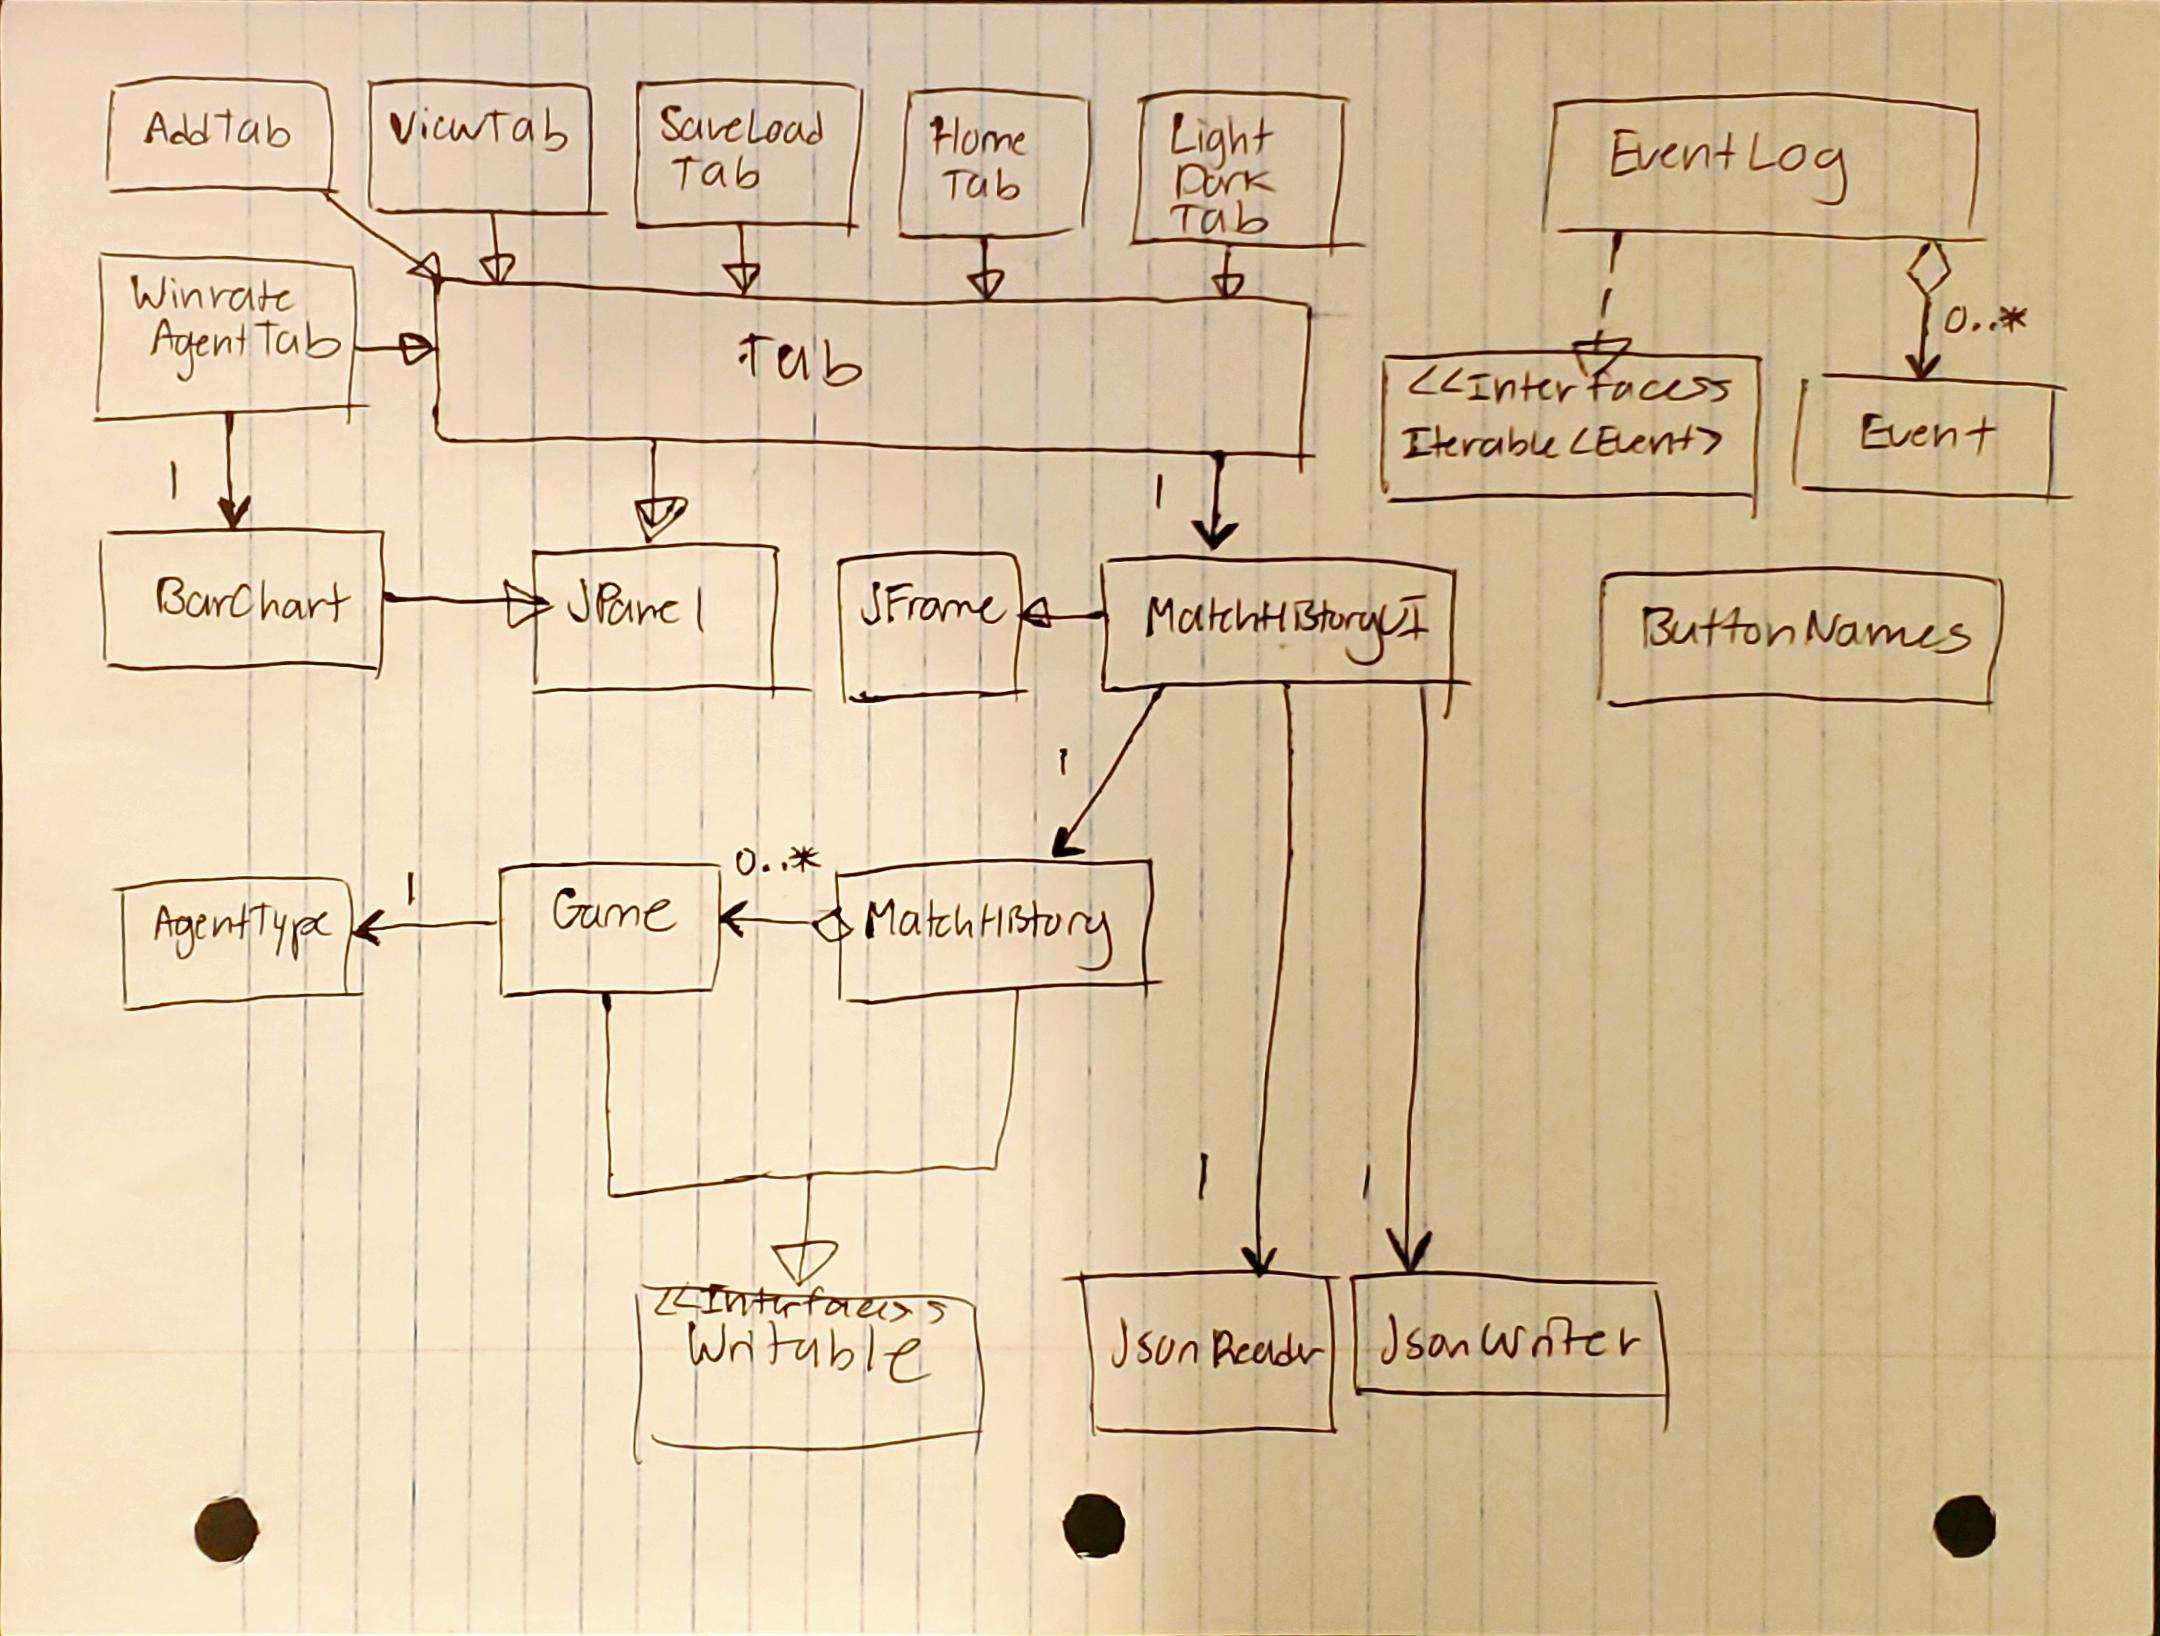 AddTab
ViewTab
SaveLoad
Tab
Home
Tab
Light
Dark
Tab
EventLog
Winrate
AgentTab
Tab
0..*
<<Interface>>
Iterable<Event>
Event
1
1
BarChart
JPanel
JFrame
MatchHistoryUI
ButtonNames
1
AgentType
1
Game
0..*
MatchHistory
1
1
<<Interface>>
Writable
JsonReader
JsonWriter